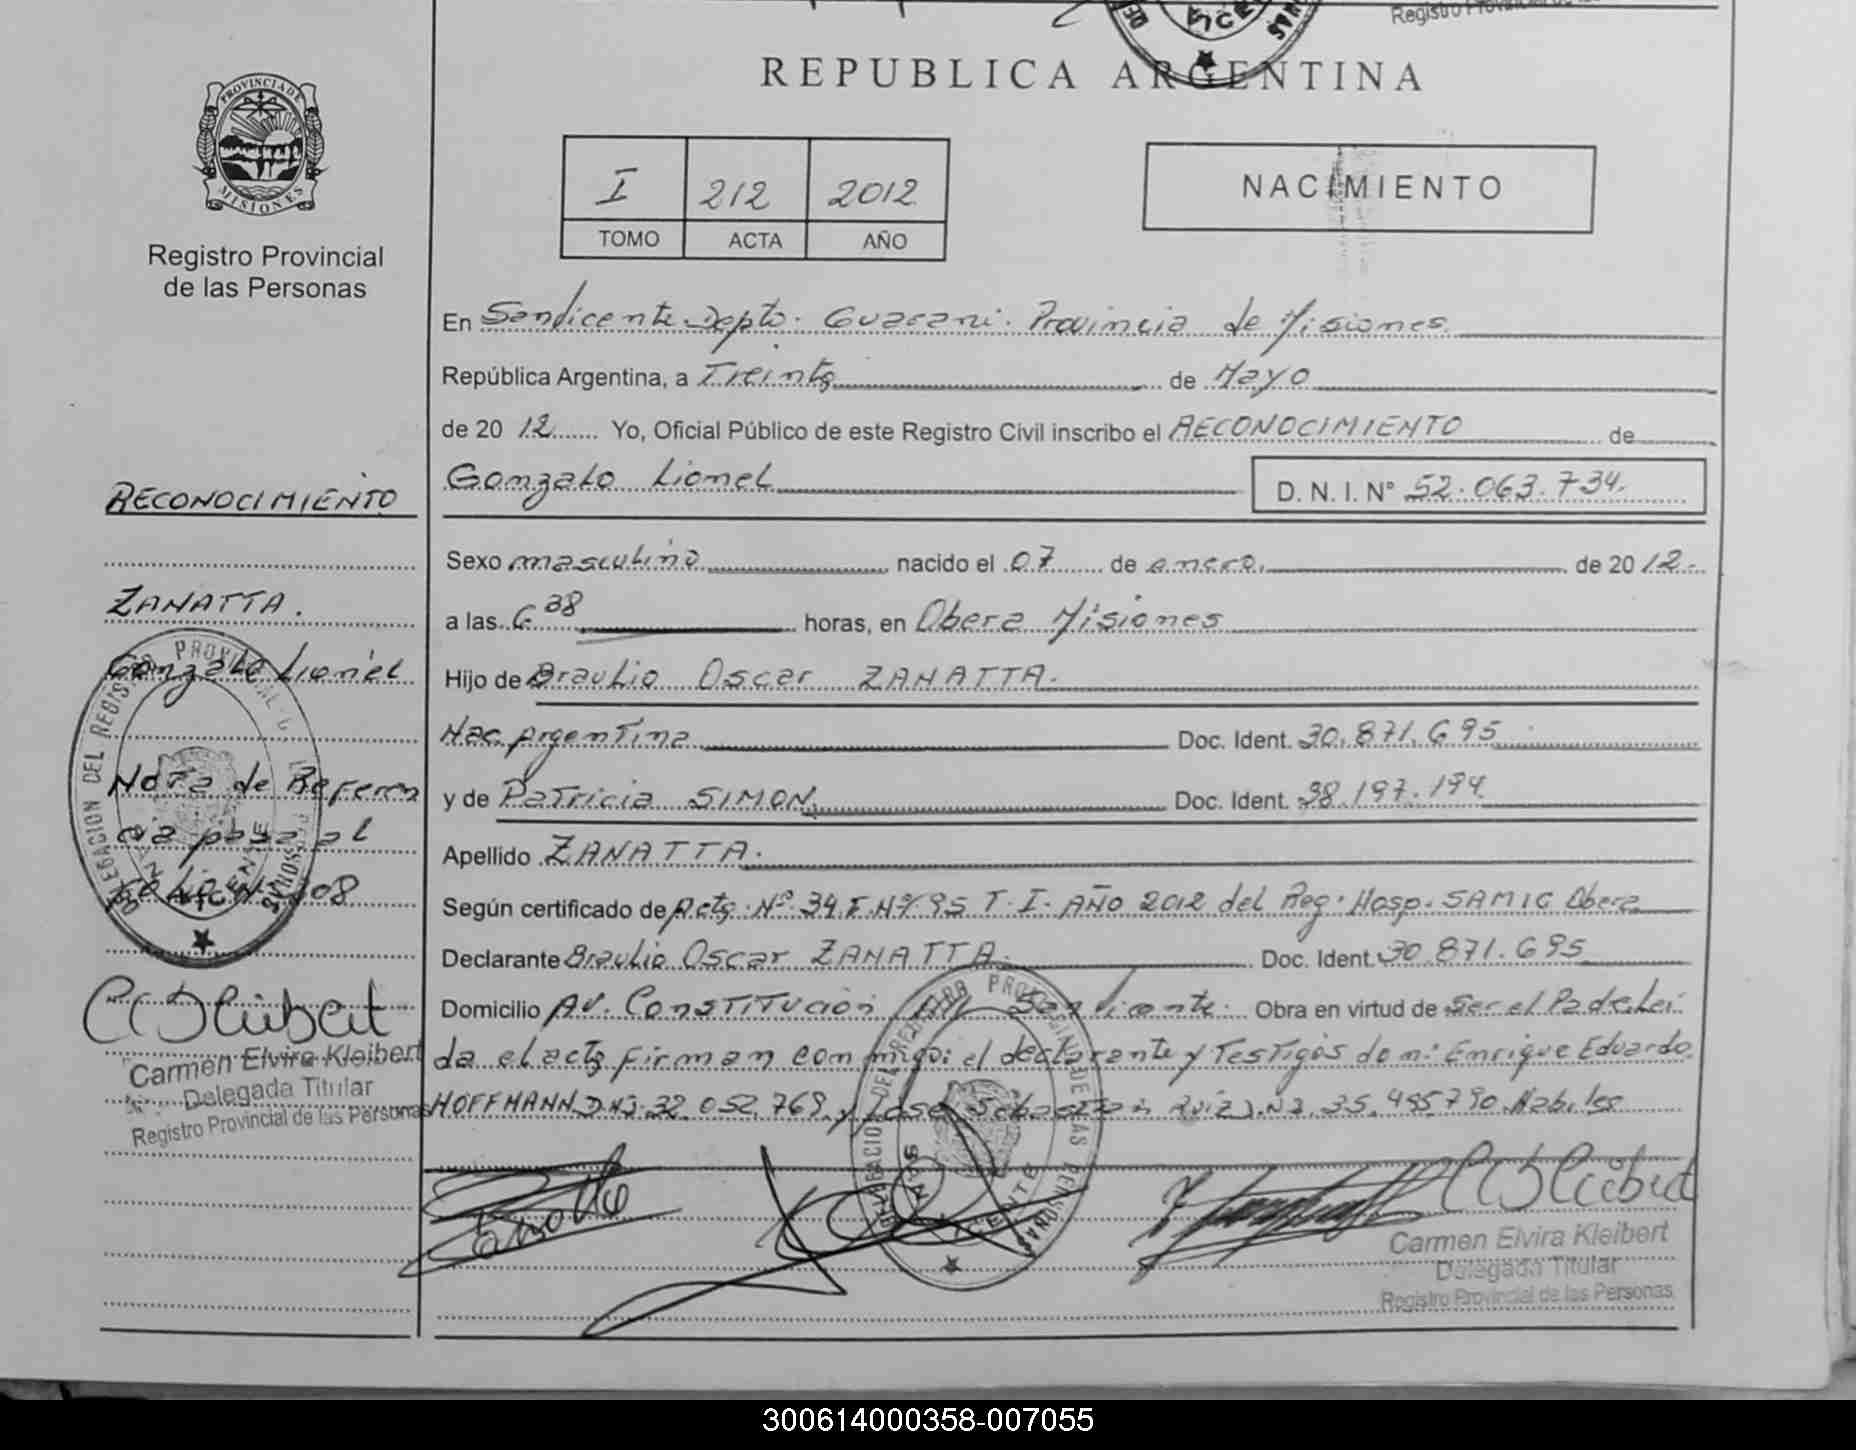 REPUBLICA ARGENTINA
PROVINCIA DE
MISIONES
Registro Provincial
de las Personas
I 212 2012
TOMO ACTA AÑO
NACIMIENTO
En San Vicente Depto. Guarani. Provincia de Misiones
República Argentina, a Treinta de Mayo
de 20 12 Yo, Oficial Público de este Registro Civil inscribo el RECONOCIMIENTO de
Gonzalo Lionel D. N. I. N° 52.063.734.
Sexo masculino nacido el 07 de enero. de 20 12.-
a las 6 38 horas, en Obera Misiones
Hijo de Braulio Oscar ZANATTA.
Nac Argentina Doc. Ident. 30.871.695
y de Patricia SIMON, Doc. Ident. 38.197.194
Apellido ZANATTA.
Según certificado de Acta. Nº 34 F. Nº 95 T. I. AÑO 2012 del Reg. Hosp. SAMIC Obera
Declarante Braulio Oscar ZANATTA. Doc. Ident. 30.871.695
Domicilio AV. Constitución San Vicente. Obra en virtud de Ser el Padre. Lei
da el acta firman conmigo: el declarante y Testigos de m: Enrique Eduardo
HOFFMANN DNI. 32.052.769 y José Sebastian 35.485.790 Habiles
RECONOCIMIENTO
ZANATTA.
Gonzalo Lionel
Nota de Referen
cia pasa al
Folio N° 108
Carmen Elvira Kleibert
Delegada Titular
Registro Provincial de las Personas
Carmen Elvira Kleibert
Delegada Titular
Registro Provincial de las Personas
300614000358-007055